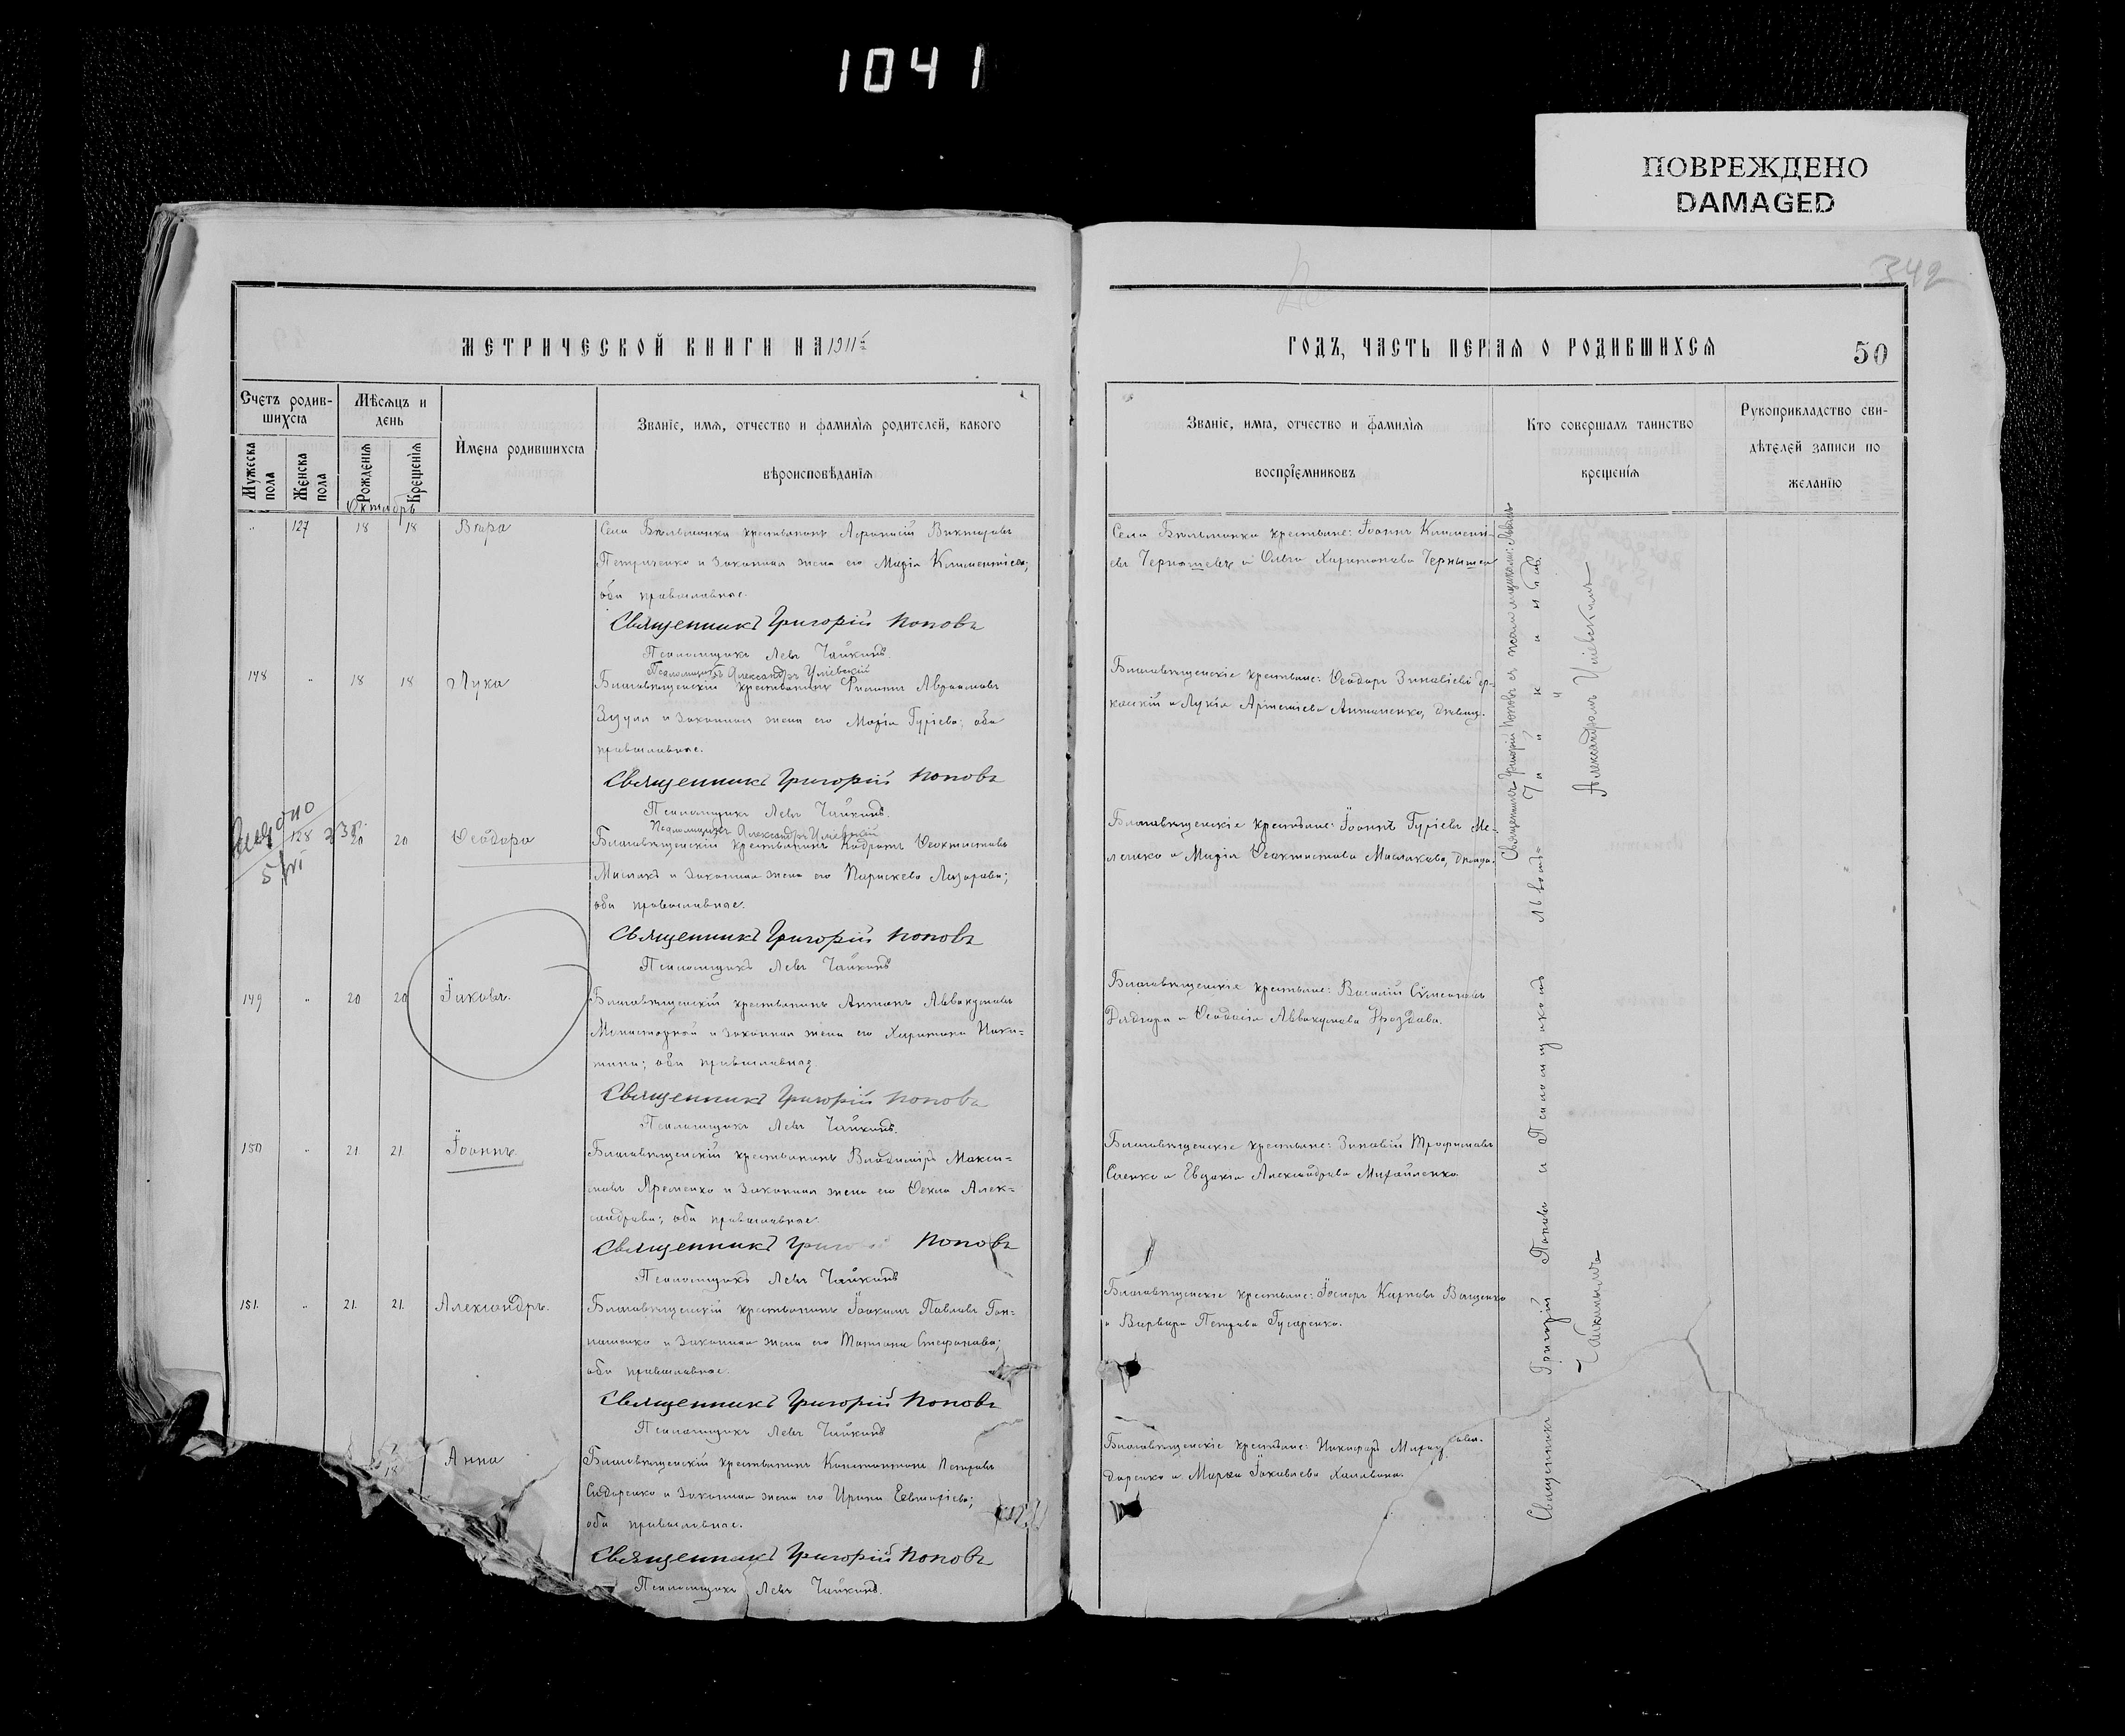 1041
ПОВРЕЖДЕНО
DAMAGED
342
МЕТРИЧЕСКОЙ КНИГИ НА 1911й
ГОДЪ, ЧАСТЬ ПЕРВАЯ О РОДИВШИХСЯ
50
Счетъ родив-
шихся
Мѣсяцъ и
день
Имена родившихся
Званіе, имя, отчество и фамилія родителей, какого
вѣроисповѣданія
Мужеска пола
Женска пола
Рожденія
Крещенія
Званіе, имя, отчество и фамилія
воспріемниковъ
Кто совершалъ таинство
крещенія
Рукоприкладство сви-
дѣтелей записи по
желанію
Октябрь
" 127 18 18 Вѣра
Села Бѣльманки крестьянинъ Афанасій Викторовъ
Петриченко и законная жена его Марія Климентіева;
оба православные.
Священникъ Григорій Поповъ
Псаломщикъ Левъ Чайкинъ
Псаломщикъ Александръ
Села Бѣльманки крестьяне: Іоаннъ Климентi-
евъ Чернышевъ и Ольга Харитонова Чернышева
148 " 18 18 Лука
Благовѣщенскій крестьянинъ Филиппъ Авраамовъ
Зууля и законная жена его Марія Гуріева; оба
православные.
Священникъ Григорій Поповъ
Псаломщикъ Левъ Чайкинъ
Псаломщикъ Александръ
Благовѣщенскіе крестьяне: Ѳеодоръ Зиновіевъ
и Лукія Артеміева Антоненко, дѣвица.
128 20 20 Ѳеодора
Благовѣщенскій крестьянинъ Кодратъ Ѳеоктистовъ
Маслакъ и законная жена его Параскева Лазарева;
оба православные.
Священникъ Григорій Поповъ
Псаломщикъ Левъ Чайкинъ
Благовѣщенскіе крестьяне: Іоаннъ Гуріевъ Ме-
лешко и Марія Ѳеоктистова Маслакова, дѣвица.
149 " 20 20 Іаковъ.
Благовѣщенскій крестьянинъ Антонъ Аввакумовъ
и законная жена его Харитина Ники-
тина; оба православные
Священникъ Григорій Поповъ
Псаломщикъ Левъ Чайкинъ.
Благовѣщенскіе крестьяне: Василій Симеоновъ
и Ѳеодосія Аввакумова
150 " 21 21 Іоаннъ
Благовѣщенскій крестьянинъ Владиміръ Макси-
мовъ Яременко и законная жена его Ѳекла Алек-
сандрова; оба православные.
Священникъ Григорій Поповъ
Псаломщикъ Левъ Чайкинъ
Благовѣщенскіе крестьяне: Зиновій Трофимовъ
Саенко и Евдокія Александрова Михайленко
151. " 21. 21. Александръ.
Благовѣщенскій крестьянинъ Іоакимъ Павловъ Гон-
и законная жена его Татіана Стефанова;
оба православные.
Священникъ Григорій Поповъ
Псаломщикъ Левъ Чайкинъ
Благовѣщенскіе крестьяне: Іосифъ Карповъ Ващенко
и Варвара Петрова Гусаренко.
18 Анна
Благовѣщенскій крестьянинъ Константинъ Петровъ
Сидоренко и законная жена его Ирина Евтихіева;
оба православные.
Священникъ Григорій Поповъ
Псаломщикъ Левъ Чайкинъ.
Благовѣщенскіе крестьяне: Никифоръ
и Марѳа Іаковлева
Священникъ Григорій Поповъ съ псаломщиками: Львомъ
Чайкинымъ и
Александромъ
Священникъ Григорій Поповъ и Псаломщикомъ Львомъ
Чайкинымъ